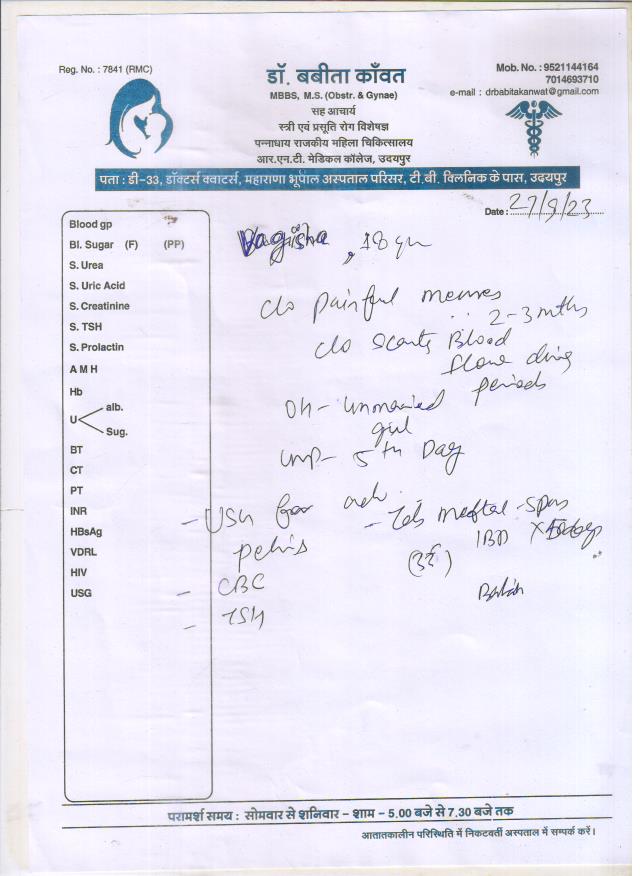 Reg. No. : 7841 (RMC)
डॉ. बबीता काँवत
MBBS, M.S. (Obstr. & Gynae)
सह आचार्य
स्त्री एवं प्रसूति रोग विशेषज्ञ
पन्नाधाय राजकीय महिला चिकित्सालय
आर.एन.टी. मेडिकल कॉलेज, उदयपुर
Mob. No. : 9521144164
7014693710
e-mail : drbabitakanwat@gmail.com
पता : डी-33, डॉक्टर्स क्वाटर्स, महाराणा भूपाल अस्पताल परिसर, टी.बी. क्लिनिक के पास, उदयपुर
Date : 27/9/23
Blood gp
Bl. Sugar (F) (PP)
S. Urea
S. Uric Acid
S. Creatinine
S. TSH
S. Prolactin
A M H
Hb
U alb.
Sug.
BT
CT
PT
INR
HBsAg
VDRL
HIV
USG
Vagisha, 18 yr
c/o painful menses
2-3 mths
c/o scanty Blood
flow
periods
O/H - unmarried
girl
LMP - 5th Day
- USG for
pelvis
- CBC
- TSH
- Tab Meftal-Spas
(3)
परामर्श समय : सोमवार से शनिवार - शाम - 5.00 बजे से 7.30 बजे तक
आतातकालीन परिस्थिति में निकटवर्ती अस्पताल में सम्पर्क करें।